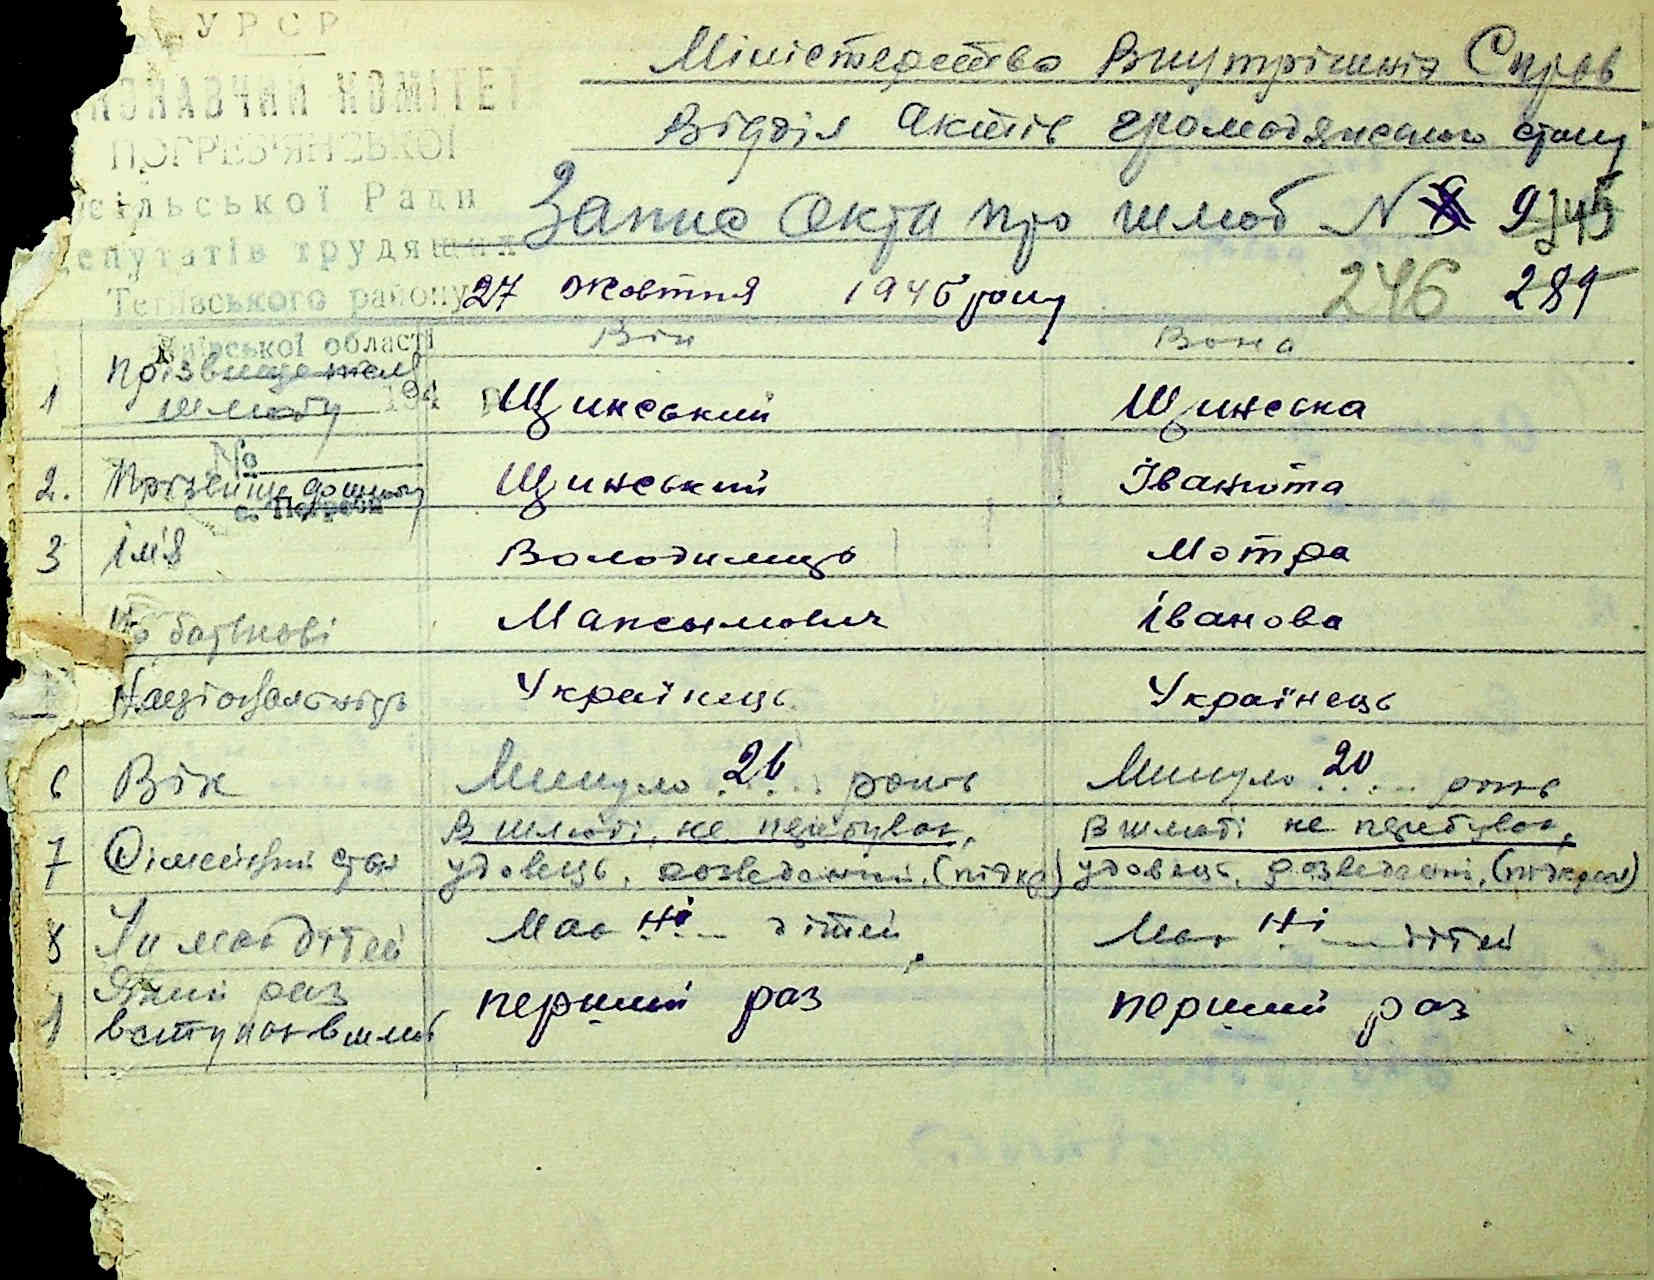 УРСР
КОНАВЧИЙ КОМІТЕТ
ПОГРЕБ'ЯНСЬКОЇ
сільської Ради
депутатів трудящих
Тетіївського району
Київської області
194
№
с. Погреби
Міністерство Внутрішніх Справ
Відділ актів громадянського стану
Запис акта про шлюб № 9
27 жовтня 1946 року 246 289
Він Вона
1 Прізвище після шлюбу Щинський Щинська
2. Прізвище до шлюбу Щинський Іванюта
3 Ім'я Володимир Мотря
По батькові Максимович Іванова
Національність Українець Українець
6 Вік Минуло 26 років Минуло 20 років
7 Сімейний стан В шлюбі не перебував, удовець, розведений, (підкр) В шлюбі не перебував, удовець, розведений, (підкрес)
8 Чи має дітей Має ні дітей Має ні дітей
Який раз вступає в шлюб перший раз перший раз